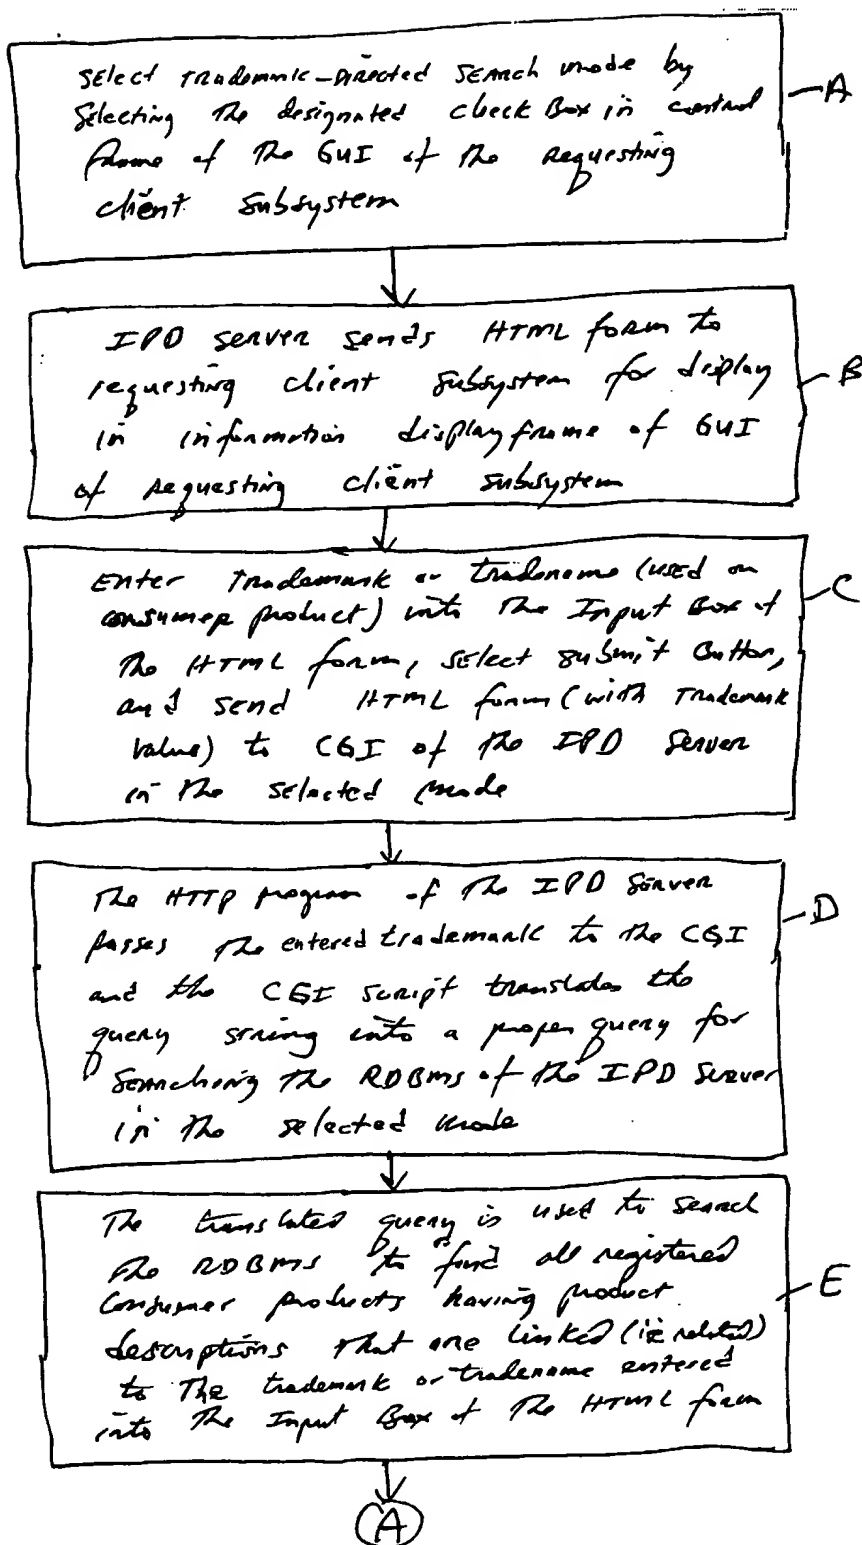 Select Trademark-Directed Search mode by
Selecting the designated check Box in control
frame of the GUI of the requesting
client subsystem
A
IPD server sends HTML form to
requesting client subsystem for display
in information display frame of GUI
of requesting client subsystem
B
Enter Trademark or tradename (used on
consumer product) into the Input Box of
the HTML form, select submit Button,
and send HTML form (with Trademark
value) to CGI of the IPD Server
in the selected mode
C
The HTTP program of the IPD Server
passes the entered trademark to the CGI
and the CGI script translates the
query string into a proper query for
searching the RDBMS of the IPD Server
in the selected mode
D
The translated query is used to search
the RDBMS to find all registered
Consumer products having product
descriptions that are linked (ie related)
to The trademark or tradename entered
into The Input Box of The HTML form
E
A